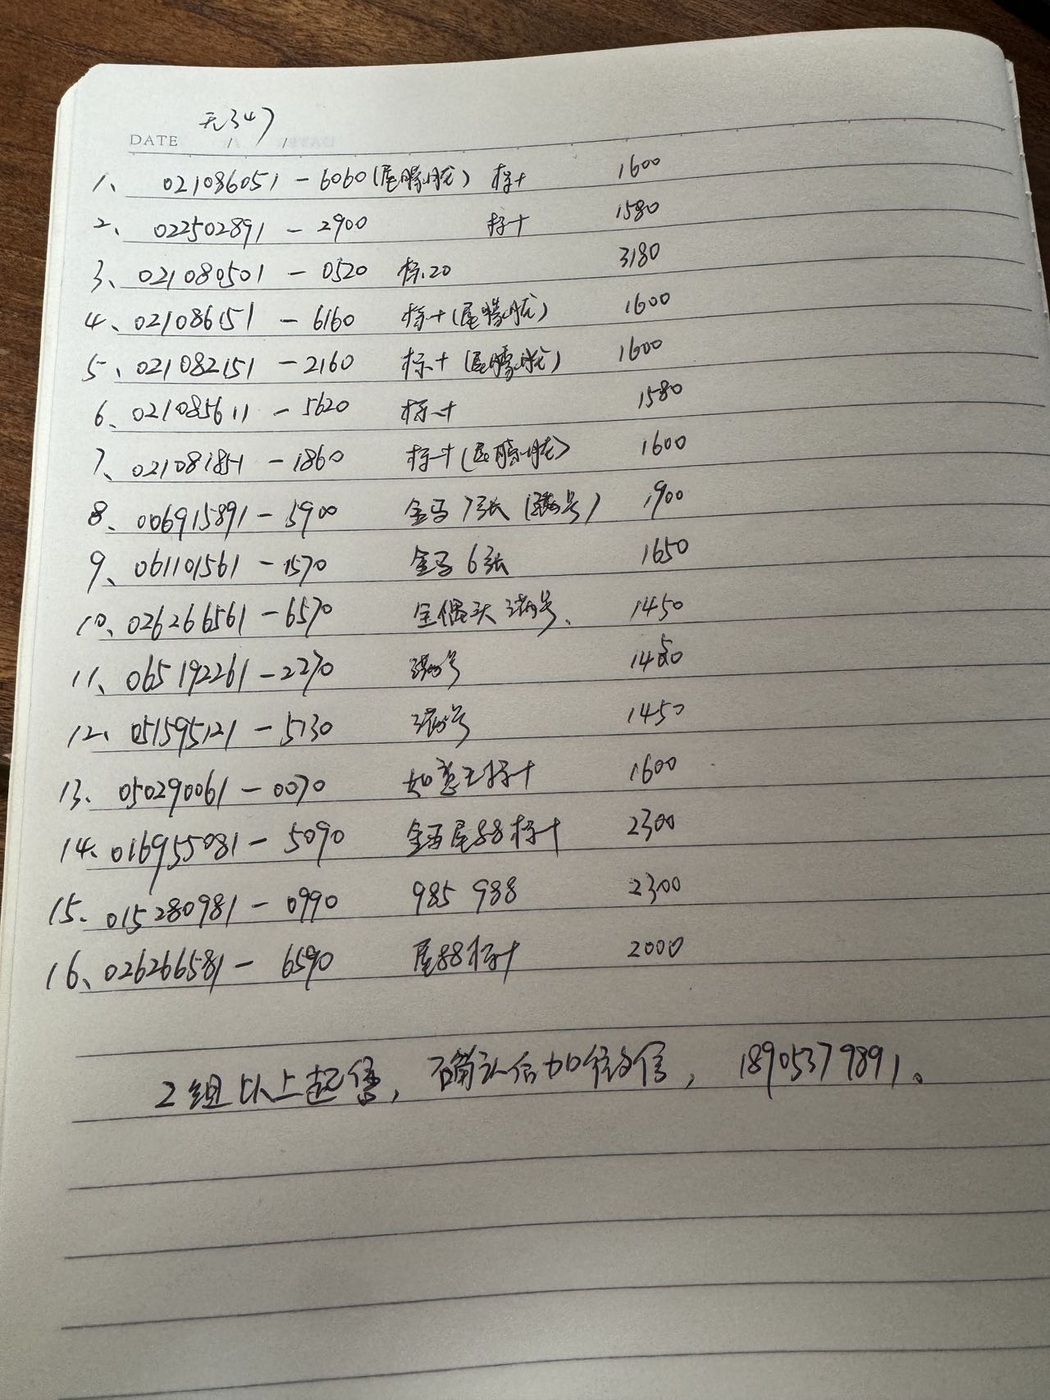 无347
DATE / /
1、 021086051-6060(尾朦胧) 标十 1600
2、 022502891-2900 标十 1580
3、 021080501-0520 标20 3180
4、 021086151-6160 标十(尾朦胧) 1600
5、 021082151-2160 标十(尾朦胧) 1600
6、 021085611-5620 标十 1580
7、 021081851-1860 标十(尾朦胧) 1600
8、 006915891-5900 金马7张(满号) 1900
9、 061101561-1570 金马6张 1650
10、 026266561-6570 全偶头 满号、 1450
11、 065192261-2270 满号 1450
12、 051595121-5130 满号 1450
13、 050290061-0070 如意王标十 1600
14、 016955081-5090 金马尾88标十 2300
15、 015280981-0990 985 988 2300
16、 026266581-6590 尾88标十 2000
2组以上起售，确认后加微信，18905379891。